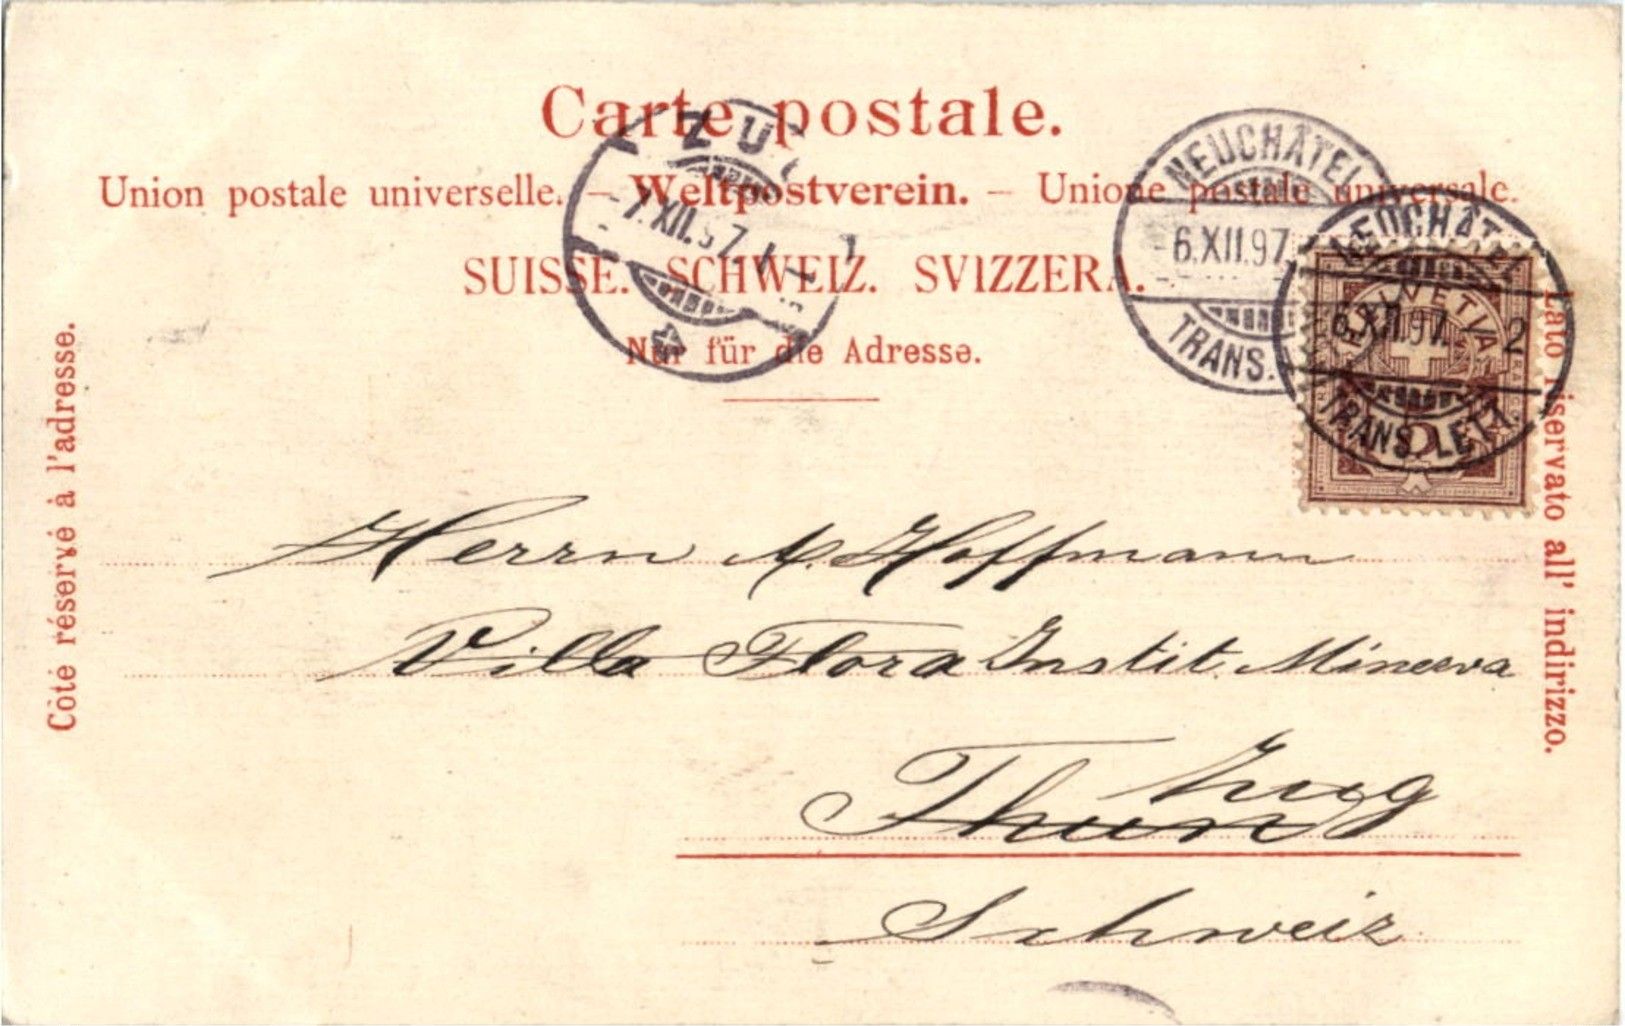 Carte postale.
Union postale universelle. – Weltpostverein. – Unione postale universale.
SUISSE. SCHWEIZ. SVIZZERA.
Nur für die Adresse.
Côté réservé à l'adresse.
Lato riservato all' indirizzo.
ZU
7.XII.97.
NEUCHÂTEL
6.XII.97
TRANS.
NEUCHÂTEL
6.XII.97. 2
TRANS. LETT.
HELVETIA
Herrn A. Hoffmann
Villa Flora Instit. Minerva
Thun Zug
Schweiz